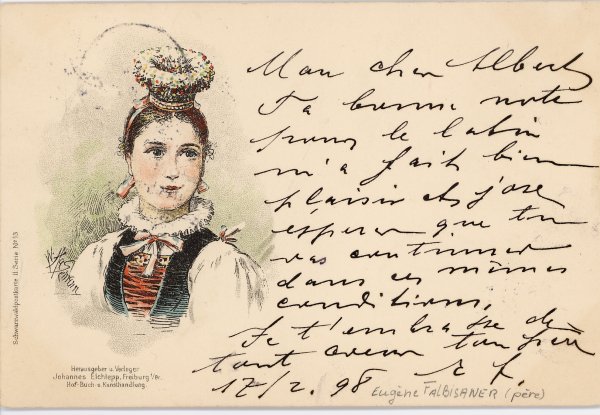 Mon cher Albert
Ta bonne note
pour le latin
m'a fait bien
plaisir et j'ose
espérer que tu
vas continuer
dans ces mêmes
conditions.
Je t'embrasse de
tout coeur ton père
E f.
17/2. 98
Eugène FALBISANER (père)
Schwarzwaldpostkarte II. Serie Nº 13
Herausgeber u. Verleger
Johannes Elchlepp, Freiburg i/Br.
Hof-Buch-u. Kunsthandlung.